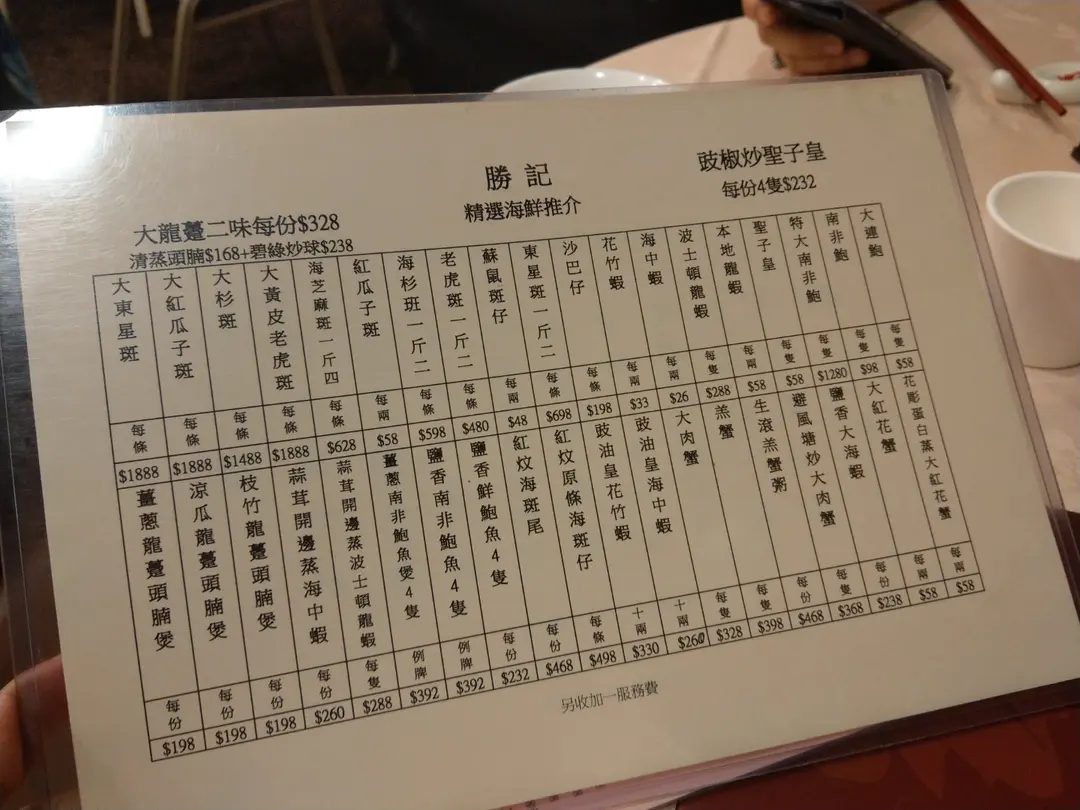 勝記
精選海鮮推介
豉椒炒聖子皇
每份4隻$232
大龍躉二味每份$328
清蒸頭腩$168+碧綠炒球$238
大東星斑 每條 $1888
大紅瓜子斑 每條 $1888
大杉斑 每條 $1488
大黃皮老虎斑 每條 $1888
海芝麻斑一斤四 每條 $628
紅瓜子斑 每兩 $58
海杉班一斤二 每條 $598
老虎斑一斤二 每條 $480
蘇鼠斑仔 每兩 $48
東星斑一斤二 每條 $698
沙巴仔 每條 $198
花竹蝦 每兩 $33
海中蝦 每兩 $26
波士頓龍蝦 每隻 $288
本地龍蝦 每兩 $58
聖子皇 每隻 $58
特大南非鮑 每隻 $1280
南非鮑 每隻 $98
大連鮑 每隻 $58
薑蔥龍躉頭腩煲 每份 $198
涼瓜龍躉頭腩煲 每份 $198
枝竹龍躉頭腩煲 每份 $198
蒜茸開邊蒸海中蝦 每份 $260
蒜茸開邊蒸波士頓龍蝦 每隻 $288
薑蔥南非鮑魚煲4隻 例牌 $392
鹽香南非鮑魚4隻 例牌 $392
鹽香鮮鮑魚4隻 每份 $232
紅炆海斑尾 每份 $468
紅炆原條海斑仔 每條 $498
豉油皇花竹蝦 十兩 $330
豉油皇海中蝦 十兩 $260
大肉蟹 每隻 $328
羔蟹 每隻 $398
生滾羔蟹粥 每份 $468
避風塘炒大肉蟹 每隻 $368
鹽香大海蝦 每份 $238
大紅花蟹 每兩 $58
花彫蛋白蒸大紅花蟹 每兩 $58
另收加一服務費